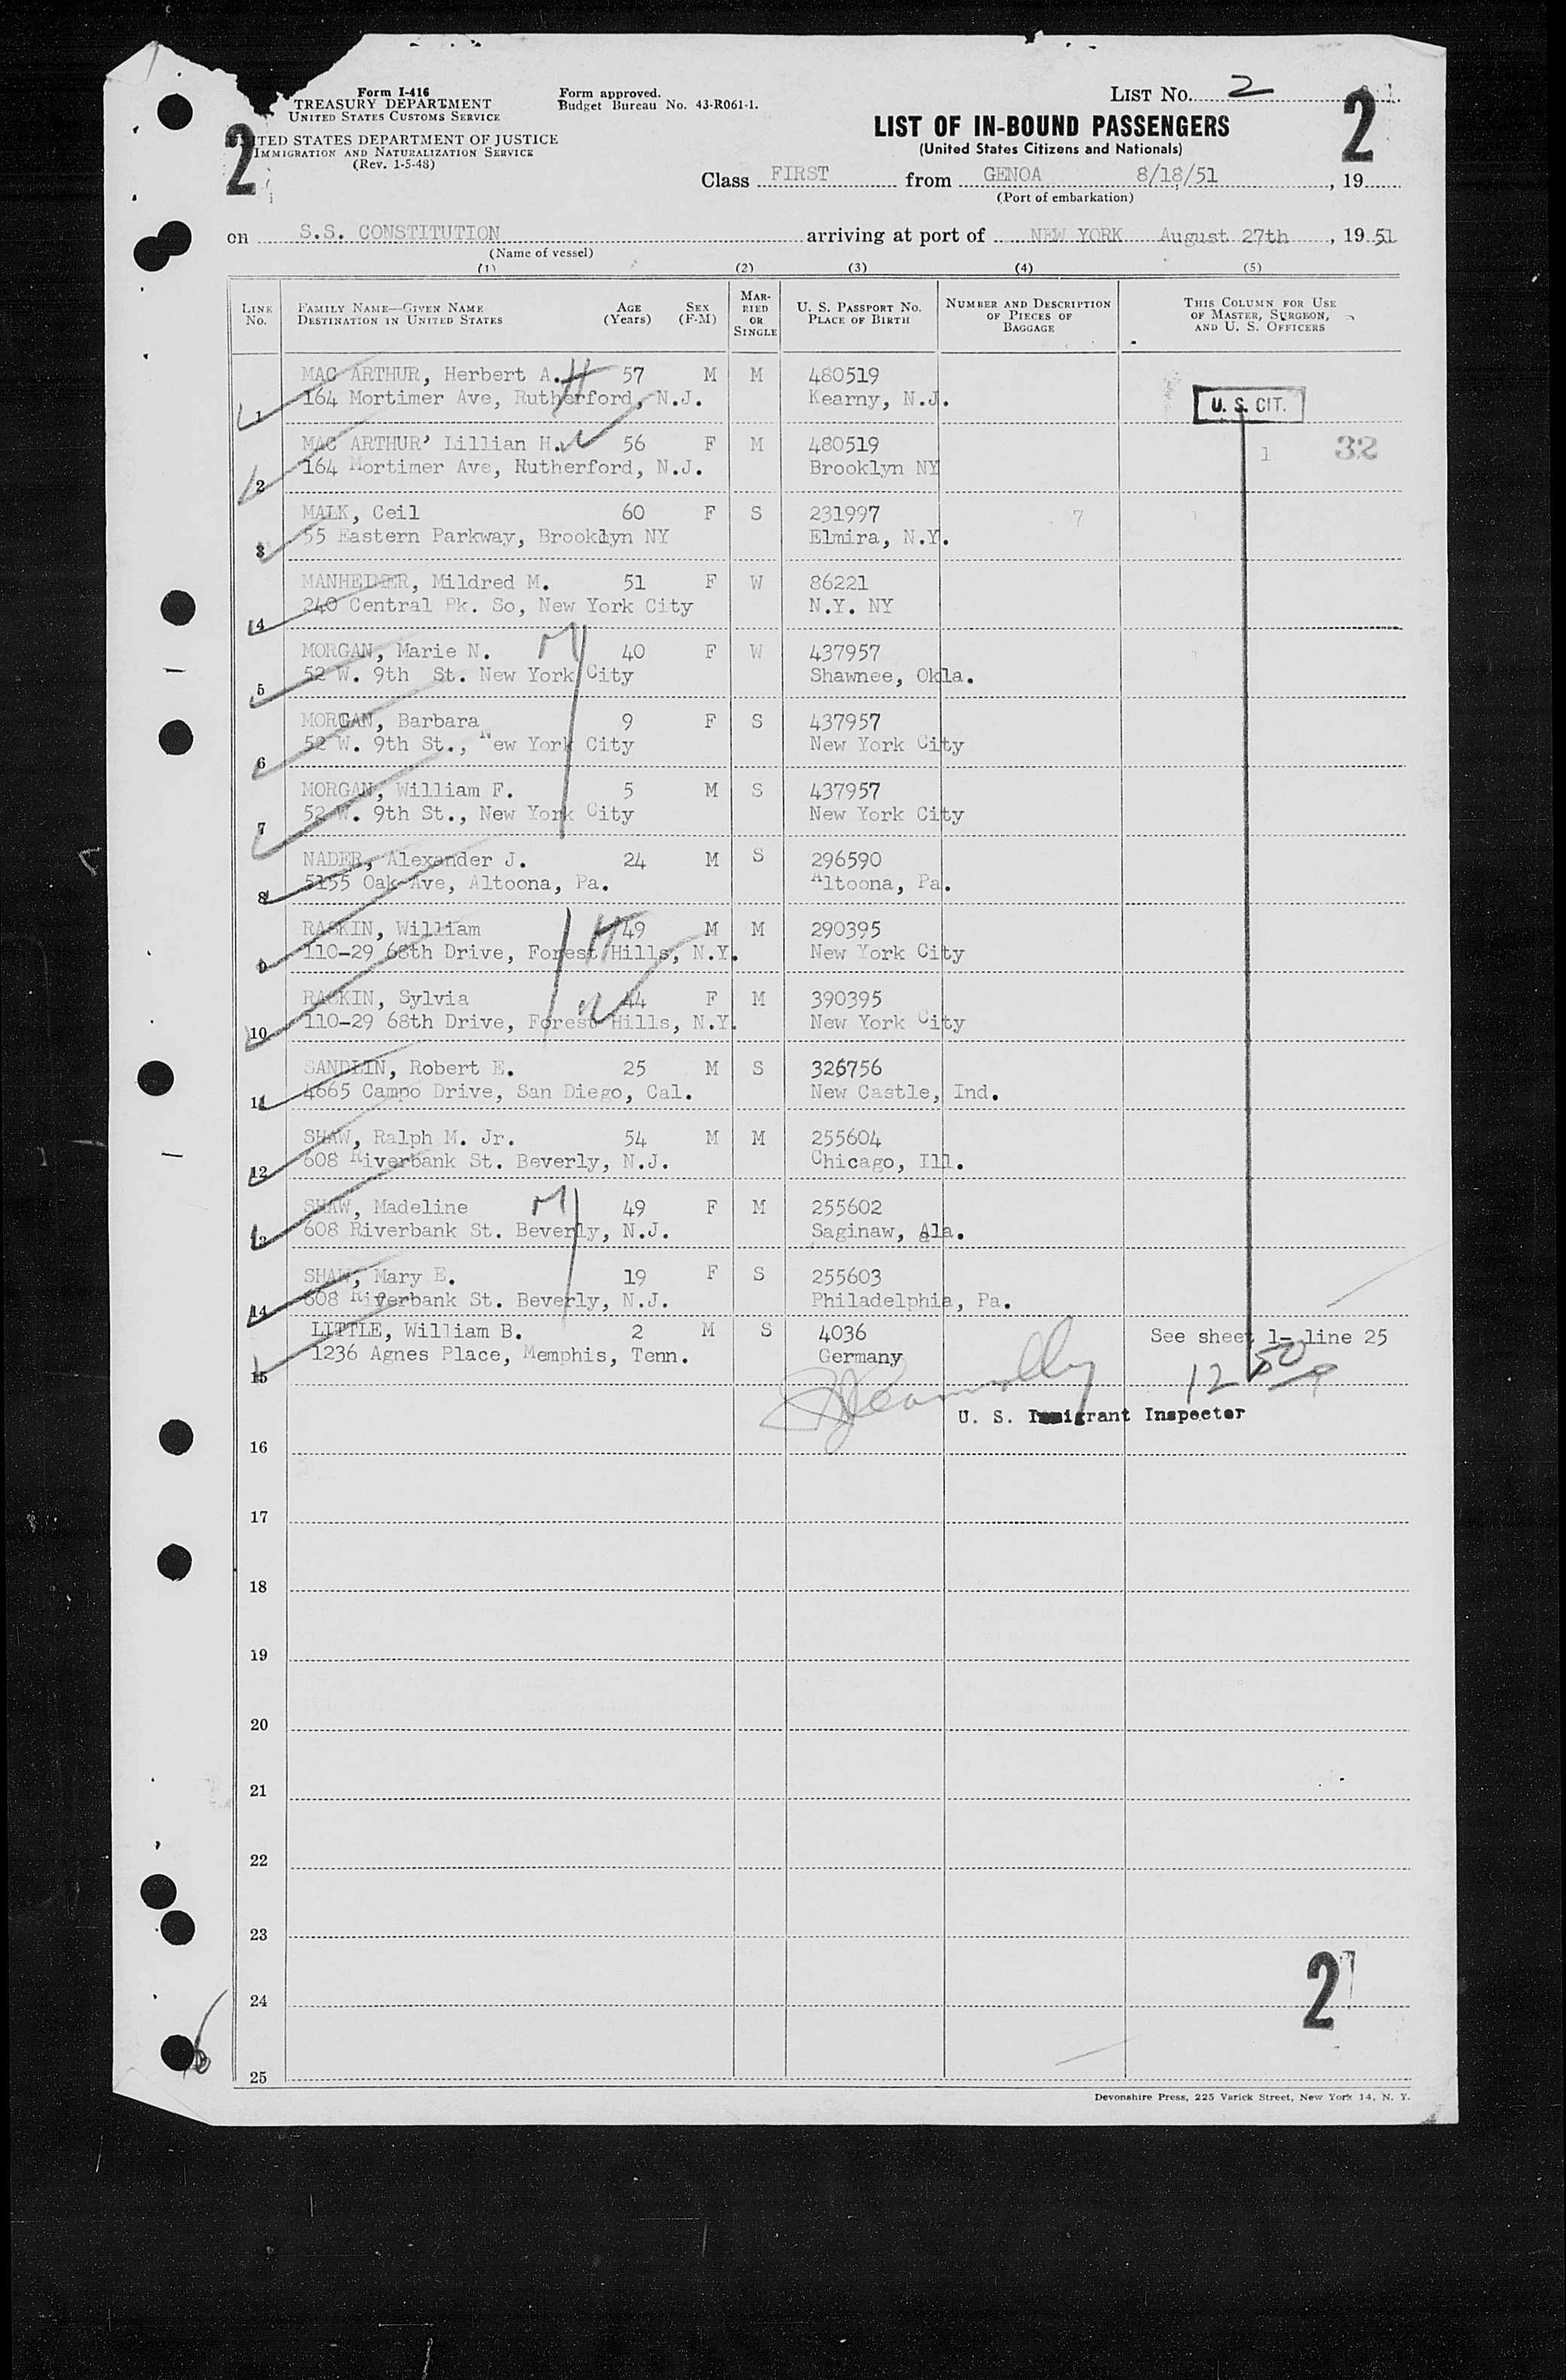 Form I-416
TREASURY DEPARTMENT
UNITED STATES CUSTOMS SERVICE
Form approved.
Budget Bureau No. 43-R061-1.
LIST NO. 2
2
2
UNITED STATES DEPARTMENT OF JUSTICE
IMMIGRATION AND NATURALIZATION SERVICE
(Rev. 1-5-48)
LIST OF IN-BOUND PASSENGERS
(United States Citizens and Nationals)
Class FIRST from GENOA 8/18/51, 19
(Port of embarkation)
on S.S. CONSTITUTION arriving at port of NEW YORK August 27th, 19 51
(Name of vessel)
(1) (2) (3) (4) (5)
LINE No. FAMILY NAME—GIVEN NAME DESTINATION IN UNITED STATES AGE (Years) SEX (F-M) MARRIED OR SINGLE U. S. PASSPORT NO. PLACE OF BIRTH NUMBER AND DESCRIPTION OF PIECES OF BAGGAGE THIS COLUMN FOR USE OF MASTER, SURGEON, AND U. S. OFFICERS
MAC ARTHUR, Herbert A. 57 M M 480519
1 164 Mortimer Ave, Rutherford, N.J. Kearny, N.J. U. S. CIT.
MAC ARTHUR' Lillian H. 56 F M 480519 1 32
2 164 Mortimer Ave, Rutherford, N.J. Brooklyn NY
MALK, Ceil 60 F S 231997 7
3 55 Eastern Parkway, Brooklyn NY Elmira, N.Y.
MANHEIMER, Mildred M. 51 F W 86221
4 240 Central Pk. So, New York City N.Y. NY
MORGAN, Marie N. M 40 F W 437957
5 52 W. 9th St. New York City Shawnee, Okla.
MORGAN, Barbara 9 F S 437957
6 52 W. 9th St., New York City New York City
MORGAN, William F. 5 M S 437957
7 52 W. 9th St., New York City New York City
NADER, Alexander J. 24 M S 296590
8 5155 Oak Ave, Altoona, Pa. Altoona, Pa.
RASKIN, William H 49 M M 290395
9 110-29 68th Drive, Forest Hills, N.Y. New York City
RASKIN, Sylvia 44 F M 390395
10 110-29 68th Drive, Forest Hills, N.Y. New York City
SANDLIN, Robert E. 25 M S 326756
11 4665 Campo Drive, San Diego, Cal. New Castle, Ind.
SHAW, Ralph M. Jr. 54 M M 255604
12 608 Riverbank St. Beverly, N.J. Chicago, Ill.
SHAW, Madeline M 49 F M 255602
13 608 Riverbank St. Beverly, N.J. Saginaw, Ala.
SHAW, Mary E. 19 F S 255603
14 608 Riverbank St. Beverly, N.J. Philadelphia, Pa.
LITTLE, William B. 2 M S 4036 See sheet 1- line 25
15 1236 Agnes Place, Memphis, Tenn. Germany
12 50
U. S. Immigrant Inspector
16
17
18
19
20
21
22
23
2
24
25
Devonshire Press, 225 Varick Street, New York 14, N. Y.